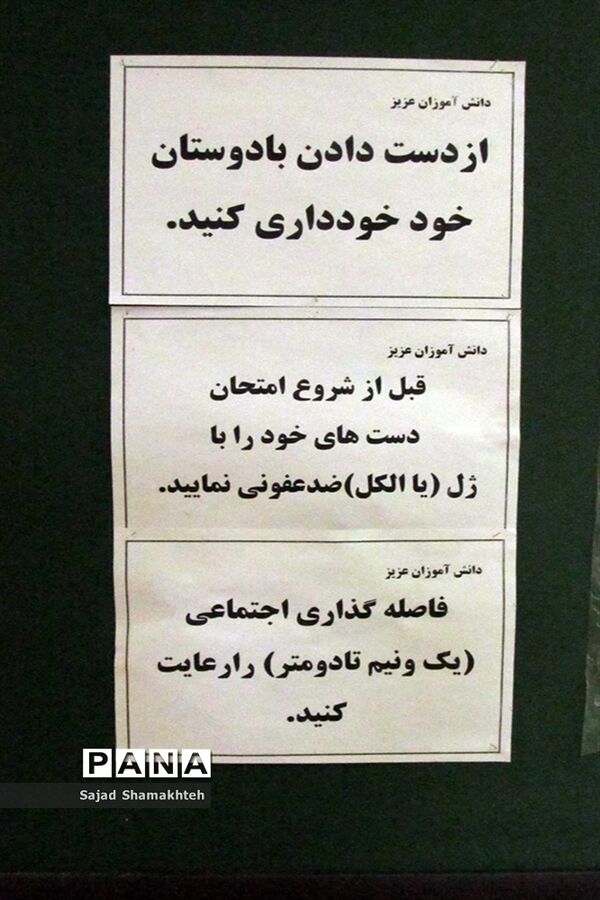 دانش آموزان عزیز
ازدست دادن بادوستان
خود خودداری کنید.
دانش آموزان عزیز
قبل از شروع امتحان
دست های خود را با
ژل (یا الکل)ضدعفونی نمایید.
دانش آموزان عزیز
فاصله گذاری اجتماعی
(یک ونیم تادومتر) رارعایت
کنید.
PANA
Sajad Shamakhteh